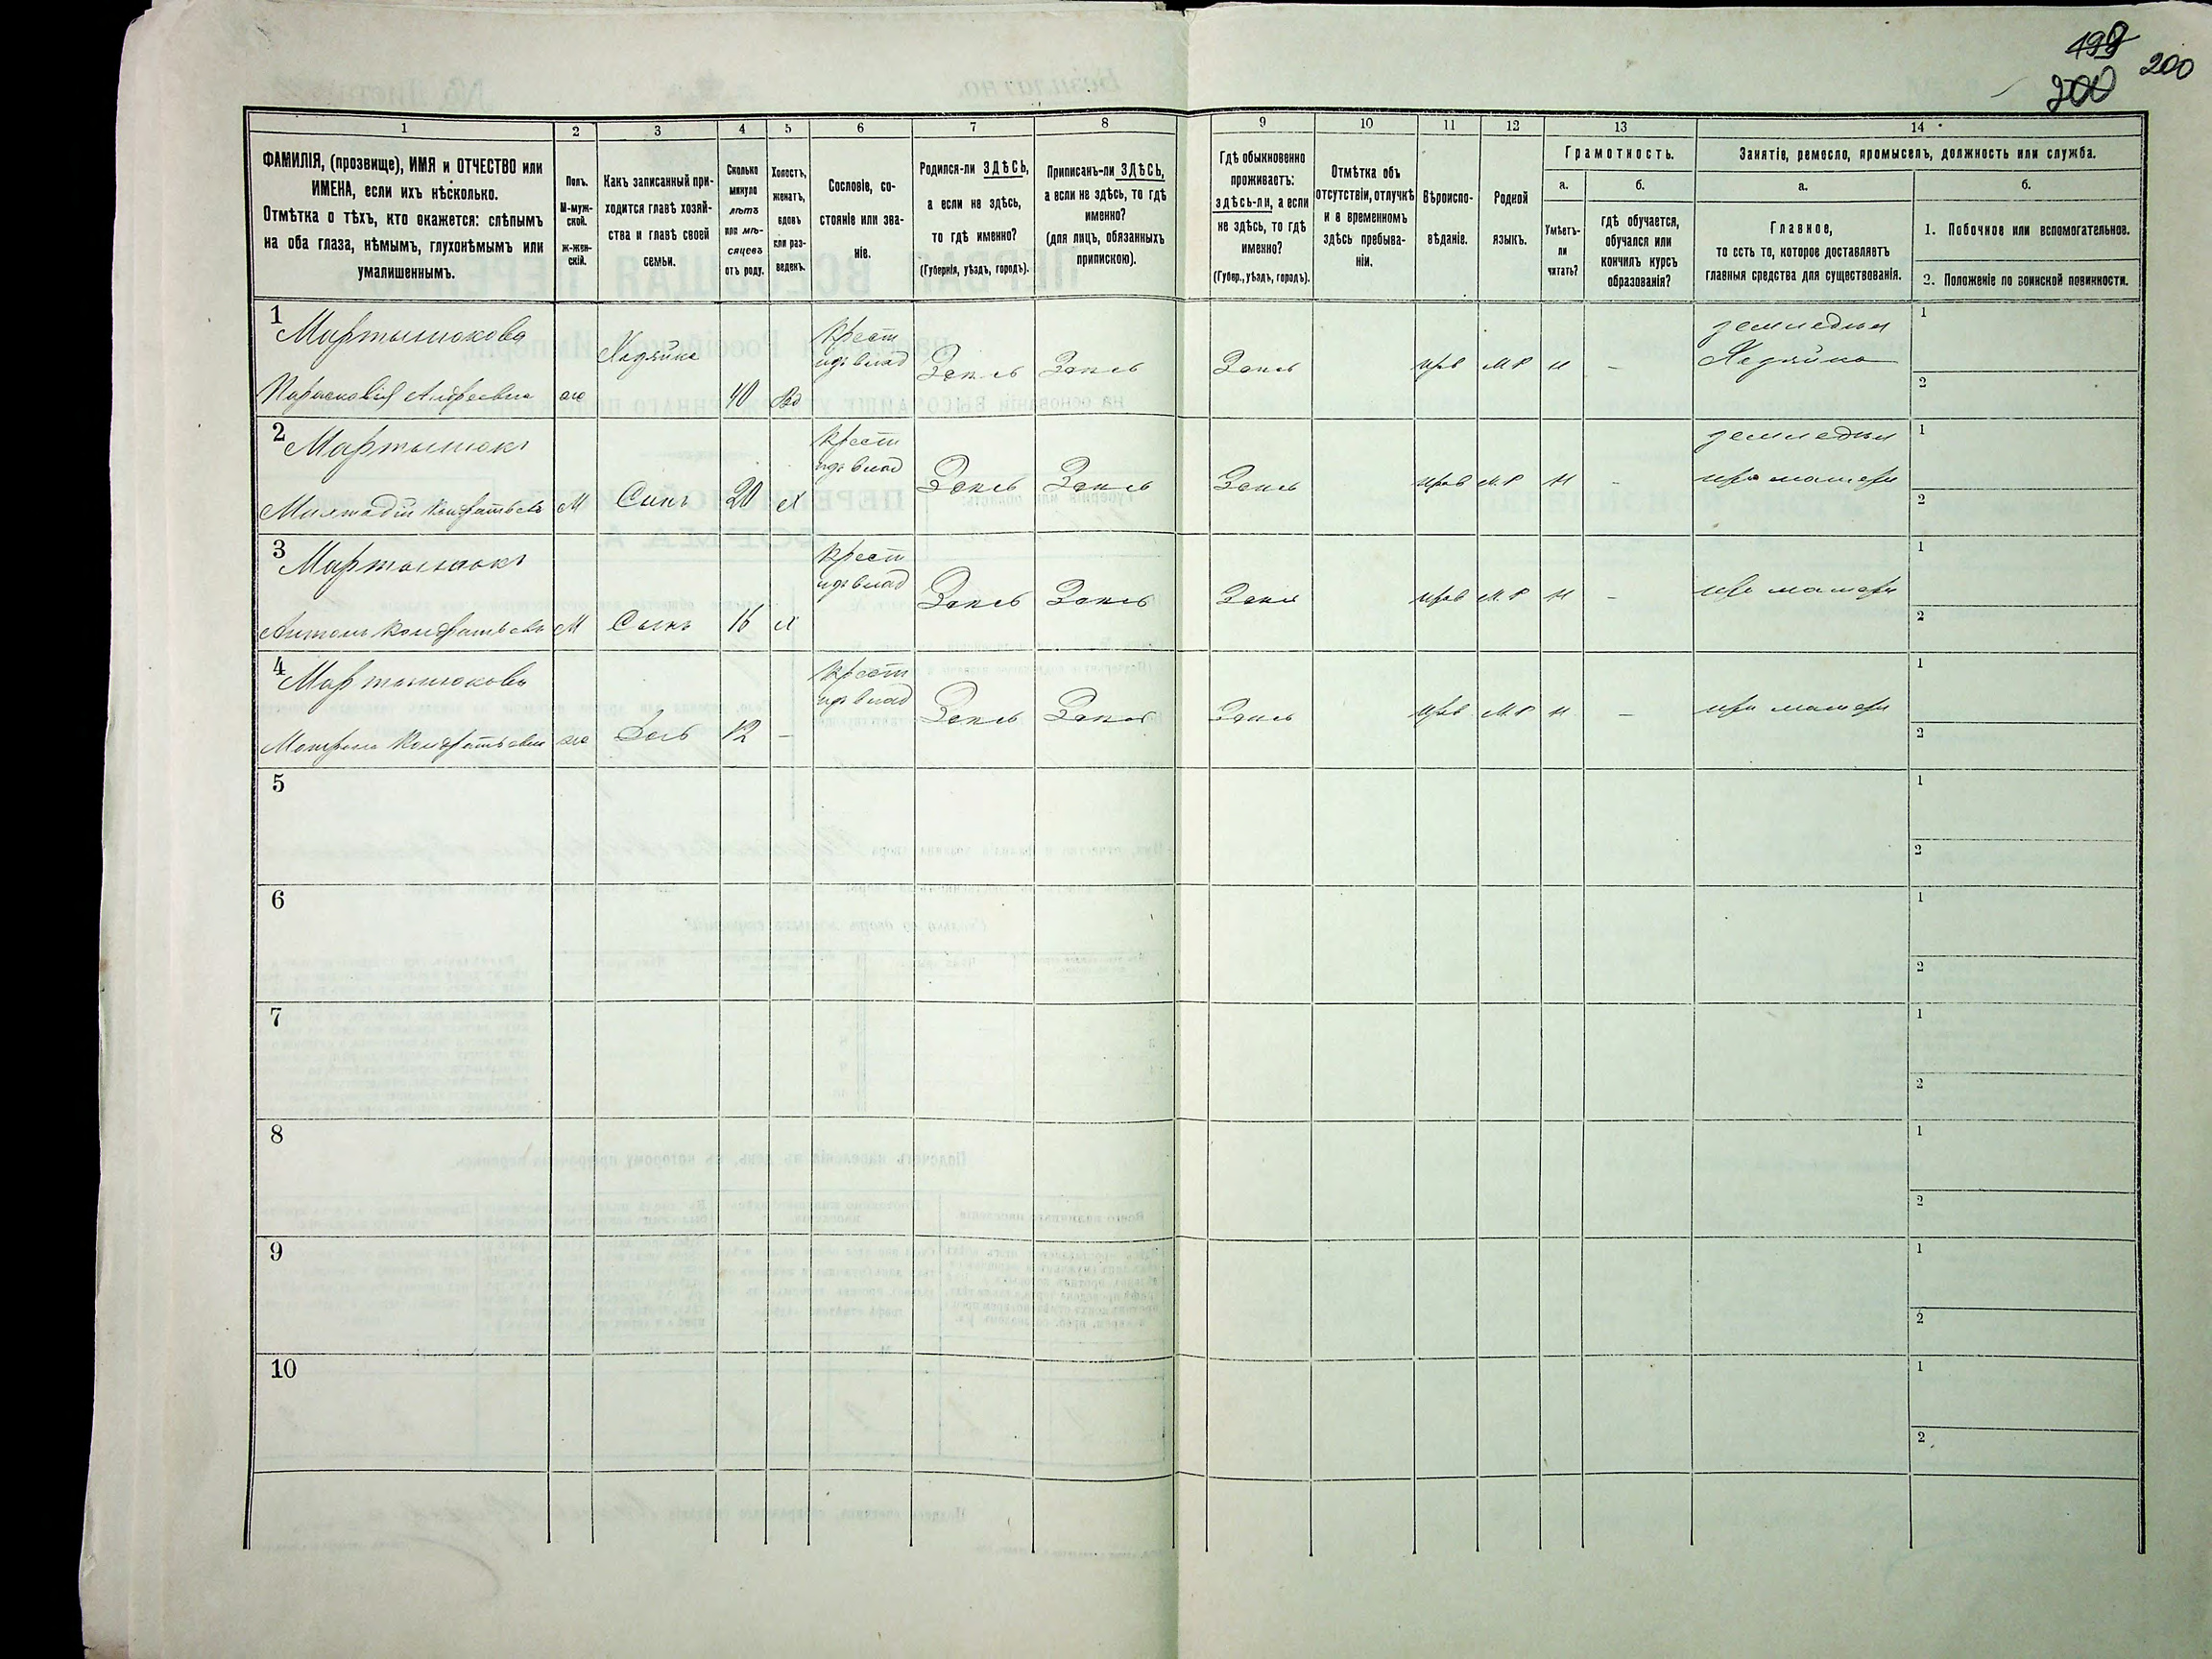 199
200
200
1
2
3
4
5
6
7
8
9
10
11
12
13
14
ФАМИЛІЯ, (прозвище), ИМЯ и ОТЧЕСТВО или
ИМЕНА, если ихъ нѣсколько.
Отмѣтка о тѣхъ, кто окажется: слѣпымъ
на оба глаза, нѣмымъ, глухонѣмымъ или
умалишеннымъ.
Полъ.
М-муж-
ской.
ж-жен-
скій.
Какъ записанный при-
ходится главѣ хозяй-
ства и главѣ своей
семьи.
Сколько
минуло
лѣтъ
или мѣ-
сяцевъ
отъ роду.
Холостъ,
женатъ,
вдовъ
или раз-
веденъ.
Сословіе, со-
стояніе или зва-
ніе.
Родился-ли ЗДѢСЬ,
а если не здѣсь,
то гдѣ именно?
(Губернія, уѣздъ, городъ).
Приписанъ-ли ЗДѢСЬ,
а если не здѣсь, то гдѣ
именно?
(для лицъ, обязанныхъ
припискою).
Гдѣ обыкновенно
проживаетъ:
здѣсь-ли, а если
не здѣсь, то гдѣ
именно?
(Губер., уѣздъ, городъ).
Отмѣтка объ
отсутствіи, отлучкѣ
и о временномъ
здѣсь пребыва-
ніи.
Вѣроиспо-
вѣданіе.
Родной
языкъ.
Грамотность.
а.
Умѣетъ-
ли
читать?
б.
гдѣ обучается,
обучался или
кончилъ курсъ
образованія?
Занятіе, ремесло, промыселъ, должность или служба.
а.
Главное,
то есть то, которое доставляетъ
главныя средства для существованія.
б.
1. Побочное или вспомогательное.
2. Положеніе по воинской повинности.
1
Мартынюкова
Хозяйка
Крест
изъ влад
Здѣсь
Здѣсь
Здѣсь
прв
М Р
н
—
земледѣл
Хозяйка
1
2
Парасковія Андреевна
ж
40
Вд
2
Мартынюкъ
Крест
изъ влад
Здѣсь
Здѣсь
Здѣсь
прав
М. Р
н
-
земледѣл
при матери
1
2
Кондратьевъ
М
Сынъ
20
Х
3
Мартынюкъ
Крест
изъ влад
Здѣсь
Здѣсь
Здѣсь
прав
М. Р
н
-
при матери
1
2
Антонъ Кондратьевъ
М
Сынъ
16
Х
4
Мартынюкова
Крест
изъ влад
Здѣсь
Здѣсь
Здѣсь
прав
М. Р
н
—
при матери
1
2
Матрона Кондратьевна
ж
Дочь
12
-
5
1
2
6
1
2
7
1
2
8
1
2
9
1
2
10
1
2